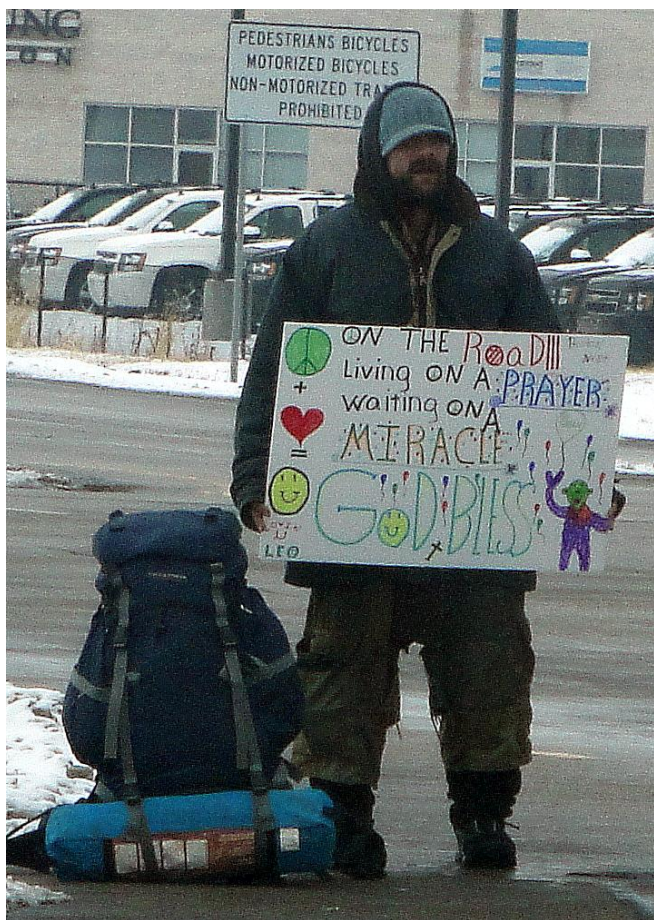 UNG
ON
PEDESTRIANS BICYCLES
MOTORIZED BICYCLES
NON-MOTORIZED
PROHIBITED
ON THE RoaD!!!
Living ON A PRAYER
waiting ON A
MIRACLE
+
=
GOD BLESS
LEO